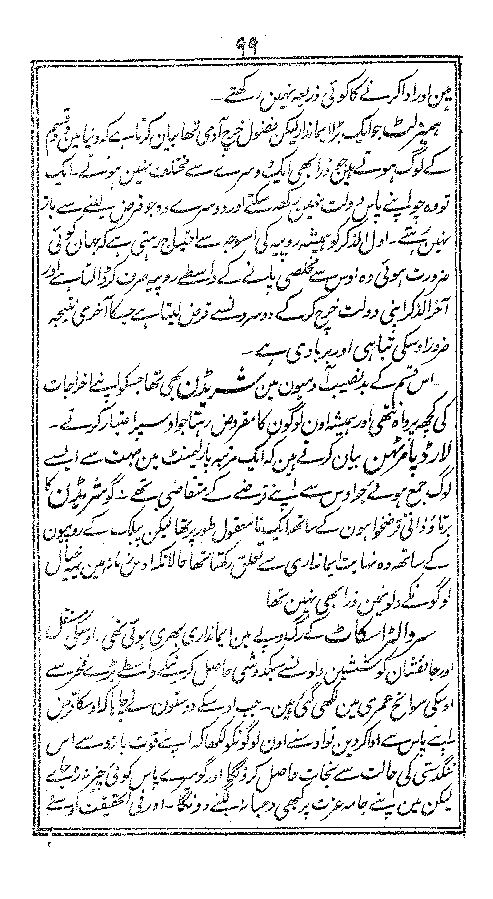 ۹۹
مین اور ادا کرنے کا کوئی ذریعہ نہین رکھتے ۔
جو ایک بڑا ایماندار لیکن فضول خرچ آدمی تھا بیان کرتا ہے کہ دنیا مین دو قسم
کے لوگ ہوتے ہین جو ذرا بھی ایک دوسرے سے مختلف نہین ہوتے ۔ ایک
تو وہ جو اپنے پاس دولت نہین رکھ سکتے اور دوسرے وہ جو قرض لینے سے باز
نہین رہتے ۔ اول الذکر کو ہمیشہ روپیہ کی اسوجہ سے احتیاج رہتی ہے کہ جہان کوئی
ضرورت ہوئی وہ اوس سے مخلصی پانے کے واسطے روپیہ صرف کر ڈالتا ہے اور
آخر الذکر اپنی دولت خرچ کر کے دوسرونسے قرض لیتا ہے جسکا آخری نتیجہ
ضرور اوسکی تباہی اور بربادی ہے ۔
اس قسم کے بدنصیب آدمیون مین شریڈن بھی تھا جسکو اپنے اخراجات
کی کچھ پرواہ نتھی اور ہمیشہ اون لوگون کا مقروض رہتا جو اوسپر اعتبار کرتے ۔
لارڈ پامرسٹن بیان کرتے ہین کہ ایک مرتبہ پارلیمنٹ مین بہت سے ایسے
لوگ جمع ہوئے جو اوس سے اپنے قرضے کے متقاضی تھے ۔ گو شریڈن کا
برتاؤ ذاتی قرضخواہون کے ساتھ ایک نامعقول طور پر تھا لیکن پبلک کے روپیون
کے ساتھ وہ نہایت ایمانداری سے تعلق رکھتا تھا حالانکہ اوس زمانہ مین یہ خیال
لوگونکے دلونمین ذرا بھی نہین تھا
سر والٹر اسکاٹ کے رگ و پے مین ایمانداری بھری ہوئی تھی ۔ اوسکی مستقل
اور جانفشان کوششین داونسے سبکدوشی حاصل کرنیکے واسطے بڑے فخر سے
اوسکی سوانح عمری مین لکھی گئی ہین ۔ جب اوسکے دوستون نے چاہا کہ اوسکا قرض
اپنے پاس سے ادا کر دین تو اوسنے اون لوگونکو لکھا کہ اپنے قوت بازو سے اس
تنگدستی کی حالت سے نجات حاصل کرونگا اور گو میرے پاس کوئی چیز نہ رہجاے
لیکن مین اپنے جامہ عزت پر کبھی دھبا نہ لگنے دونگا ۔ اور فی الحقیقت اوسنے